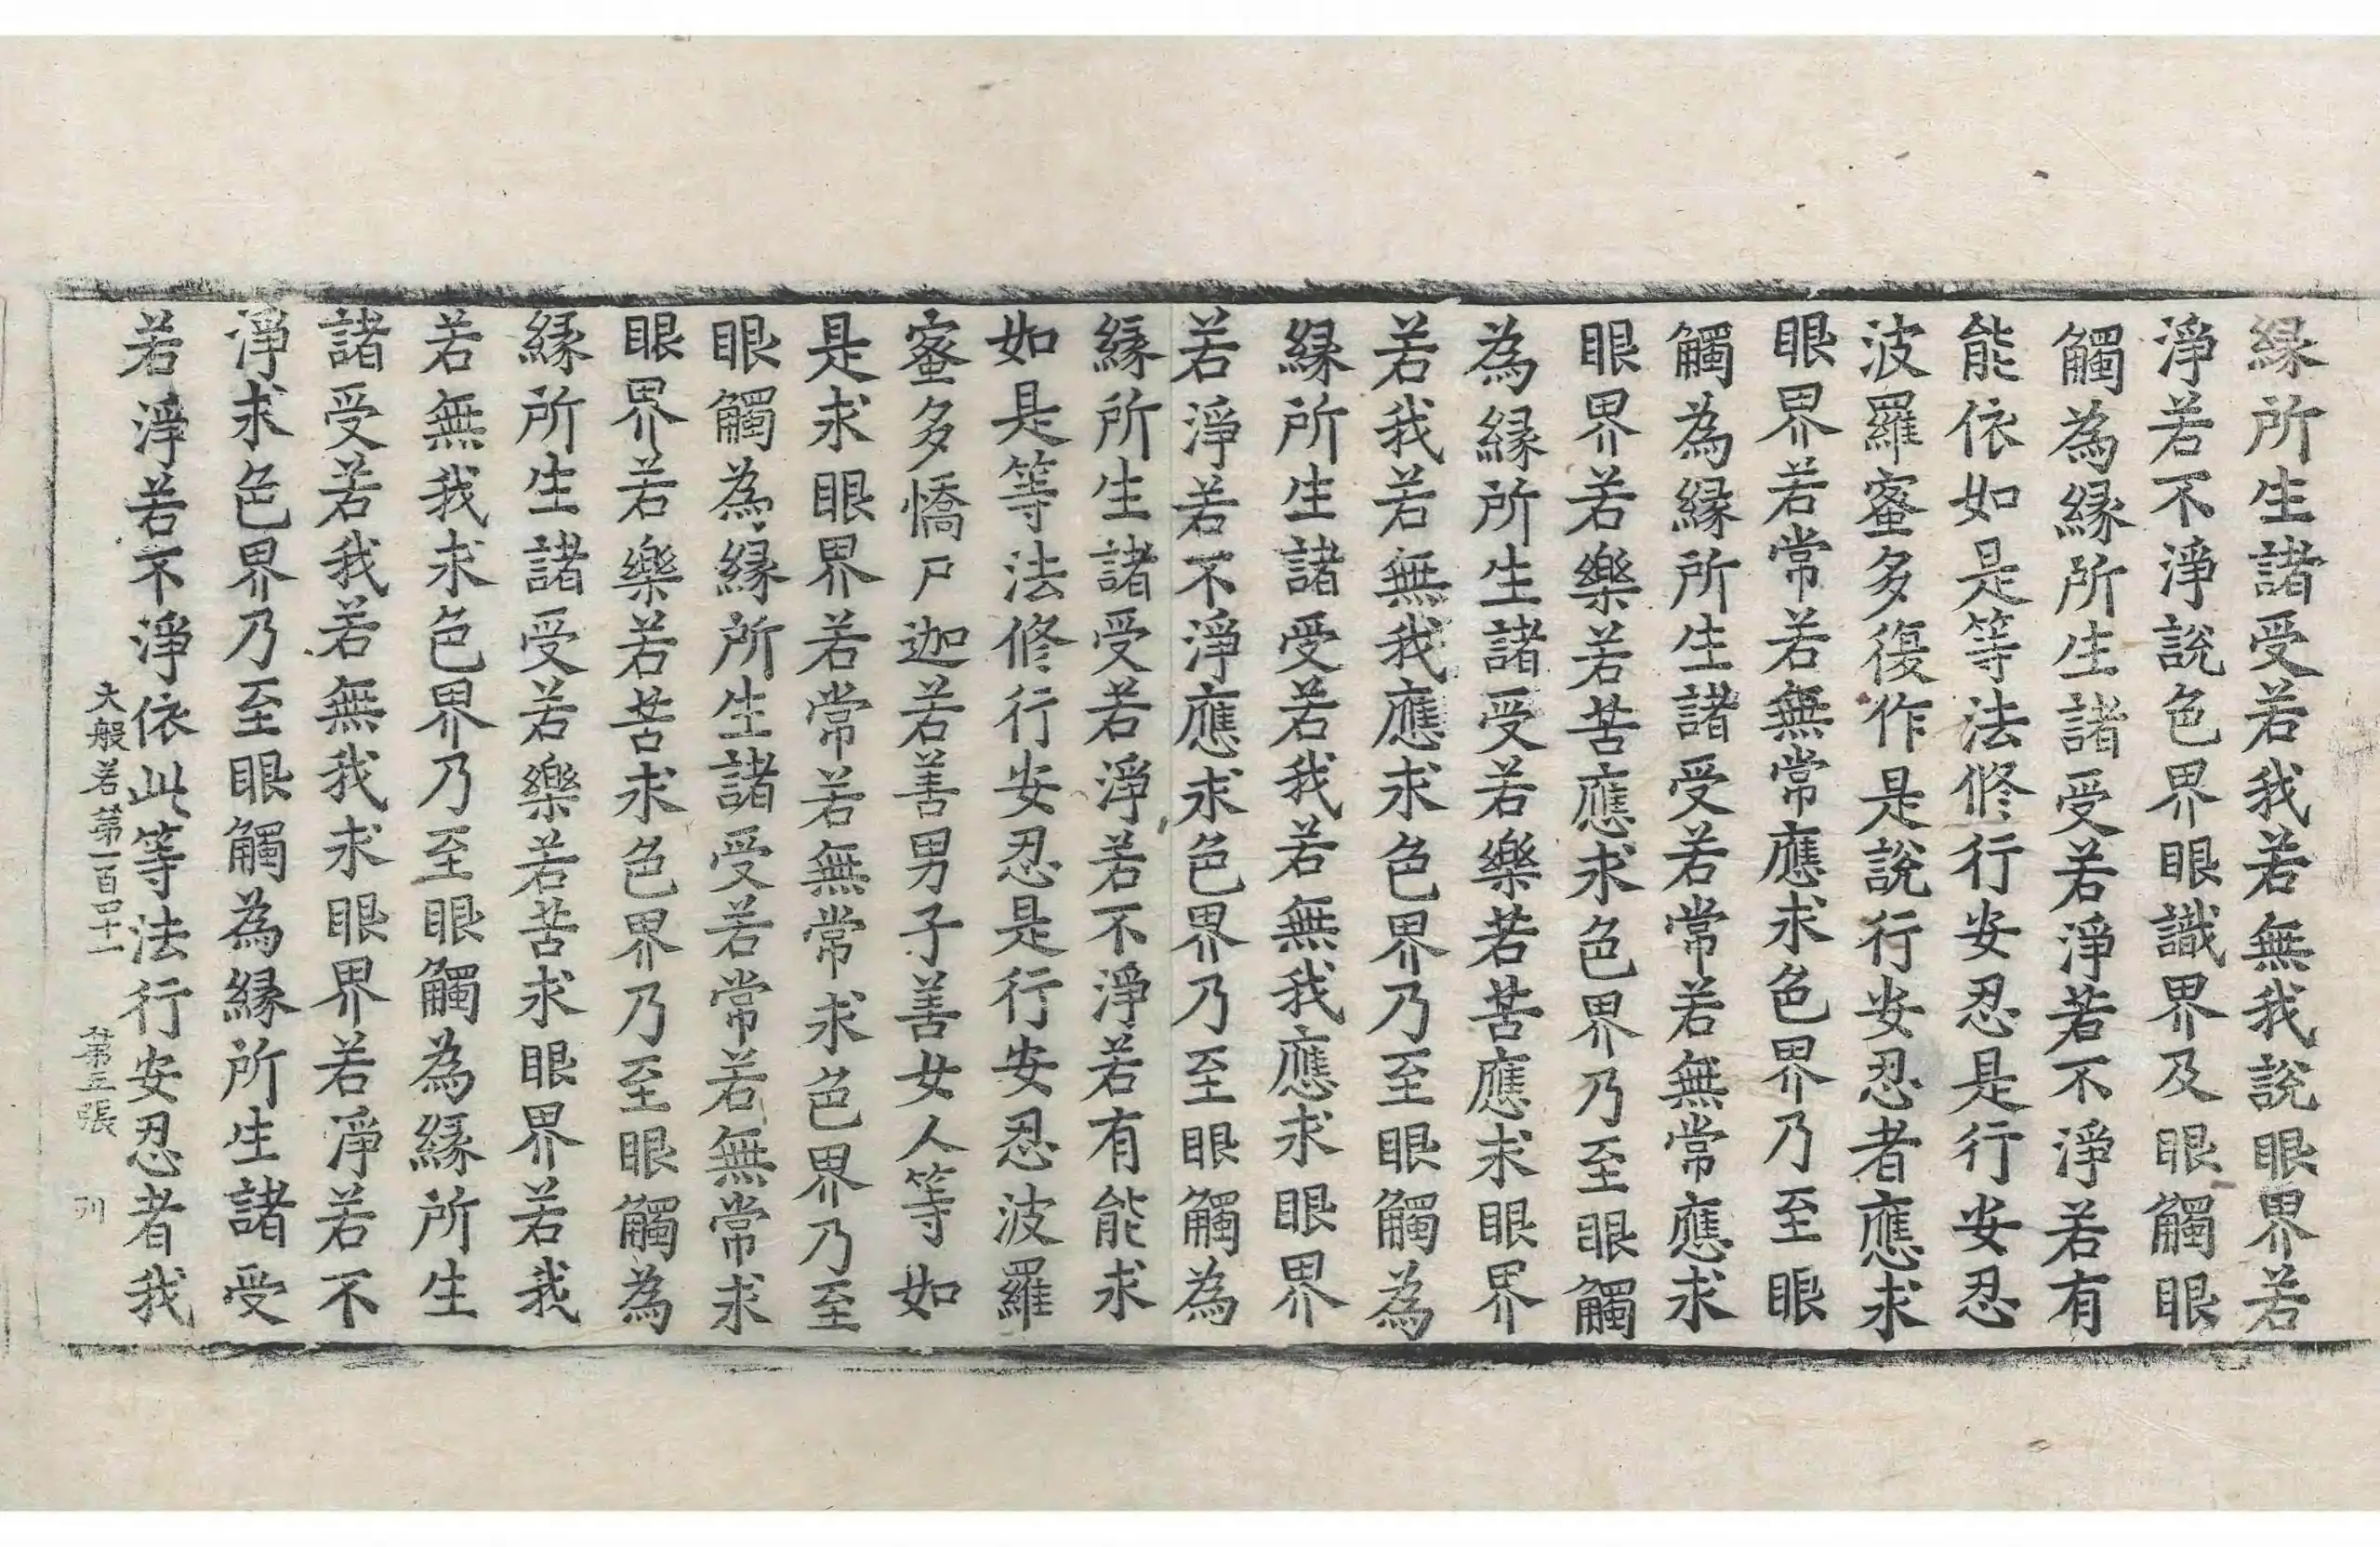 緣所生諸受若我若無我說眼界若
淨若不淨說色界眼識界及眼觸眼
觸為緣所生諸受若淨若不淨若有
能依如是等法修行安忍是行安忍
波羅蜜多復作是說行安忍者應求
眼界若常若無常應求色界乃至眼
觸為緣所生諸受若常若無常應求
眼界若樂若苦應求色界乃至眼觸
為緣所生諸受若樂若苦應求眼界
若我若無我應求色界乃至眼觸為
緣所生諸受若我若無我應求眼界
若淨若不淨應求色界乃至眼觸為
緣所生諸受若淨若不淨若有能求
如是等法修行安忍是行安忍波羅
蜜多憍尸迦若善男子善女人等如
是求眼界若常若無常求色界乃至
眼觸為緣所生諸受若常若無常求
眼界若樂若苦求色界乃至眼觸為
緣所生諸受若樂若苦求眼界若我
若無我求色界乃至眼觸為緣所生
諸受若我若無我求眼界若淨若不
淨求色界乃至眼觸為緣所生諸受
若淨若不淨依此等法行安忍者我
大般若第一百四十一 第三張